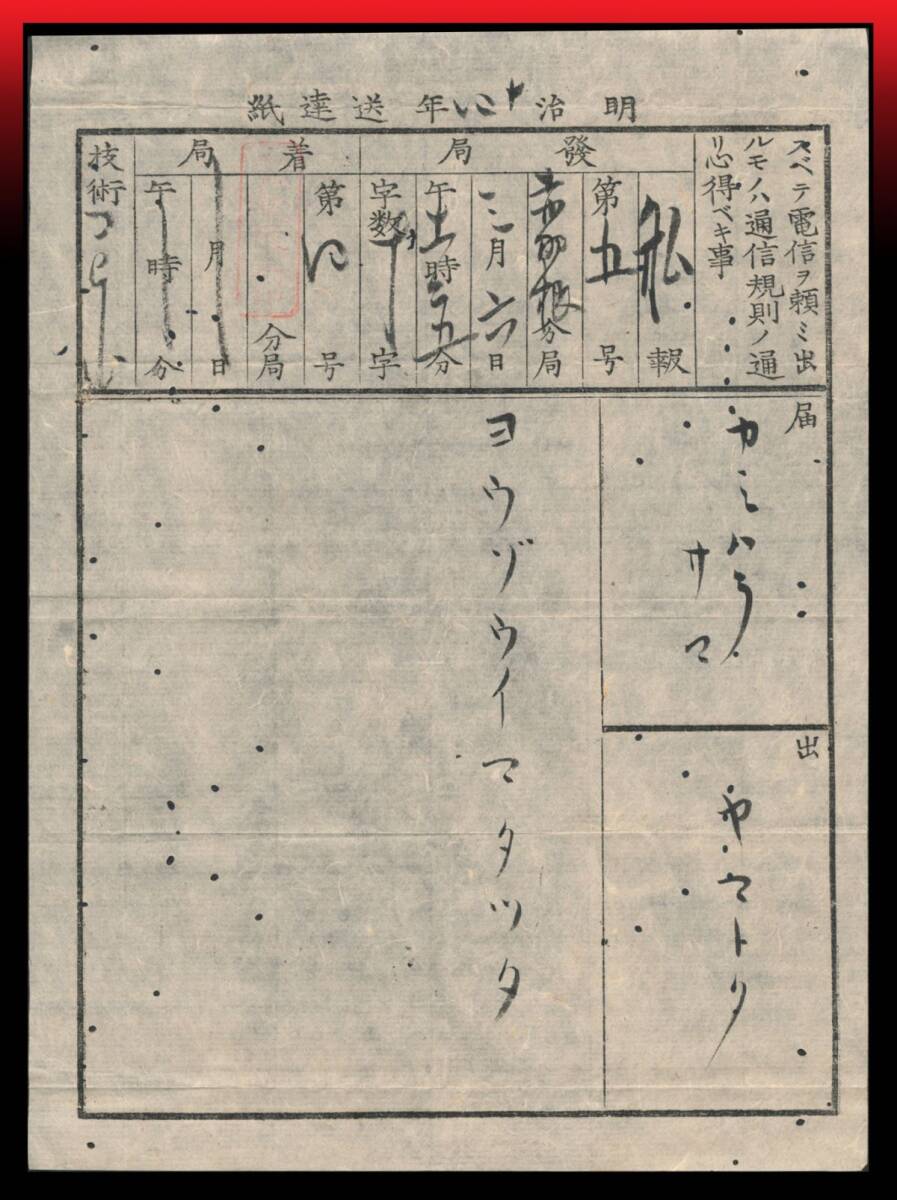 明治十二年送達紙
スベテ電信ヲ頼ミ出
ルモノハ通信規則ノ通
リ心得ベキ事
發局
私報
第五号
赤間根分局
三月六日
午土時五分
字数十字
着局
第号
分局
月日
午時分
技術
届
カミハラ
サマ
出
ヤマトタ
ヨウヅウイマタツタ